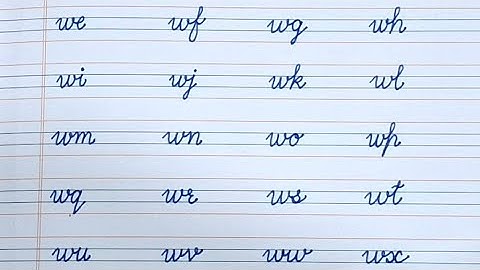 we wf wg wh
wi wj wk wl
wm wn wo wp
wq wr ws wt
wu wv ww wx